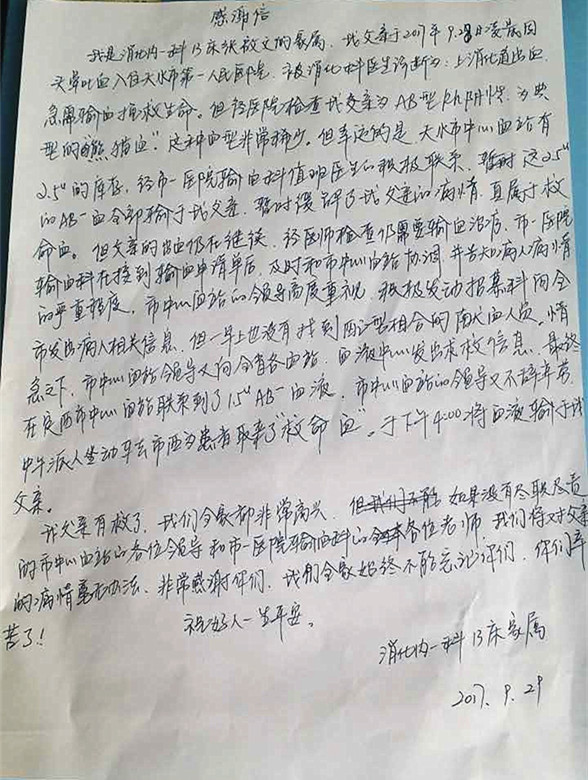 感谢信
我是消化内一科13床张效文的家属，我父亲于2017年9.28日凌晨因
头晕吐血入住天水市第一人民医院，被消化一科医生诊断为：上消化道出血，
急需输血抢救生命。但经医院检查我父亲为AB型Rh阴性，为典
型的"熊猫血"，这种血型非常稀少。但幸运的是，天水市中心血站有
2.5u的库存，经市一医院输血科值班医生的积极联系，暂时这2.5u
的AB-血全部输于我父亲，暂时缓解了我父亲的病情，真属于救
命血。但父亲的出血仍在继续，经医师检查仍需要输血治疗，市一医院
输血科在接到输血申请单后，及时和市中心血站协调，并告知病人病情
的严重程度，市中心血站的领导高度重视，积极发动招募科向全
市发出病人相关信息，但一早上也没有找到血型相合的献血人员，情
急之下，市中心血站领导又向全省各血站、血液中心发出求救信息，最终
在定西市中心血站联系到了1.5u AB-血液，市中心血站的领导又不辞辛苦，
中午派人坐动车去定西为患者取来了"救命血"，于下午4:00将血液输于我
父亲。
我父亲有救了，我们全家都非常高兴，如果没有尽职尽责
的市中心血站的各位领导和市一医院输血科的各位老师，我们将对父亲
的病情毫无办法，非常感谢你们，我们全家始终不能忘记你们，你们辛
苦了！
祝好人一生平安。
消化内一科13床家属
2017.9.29